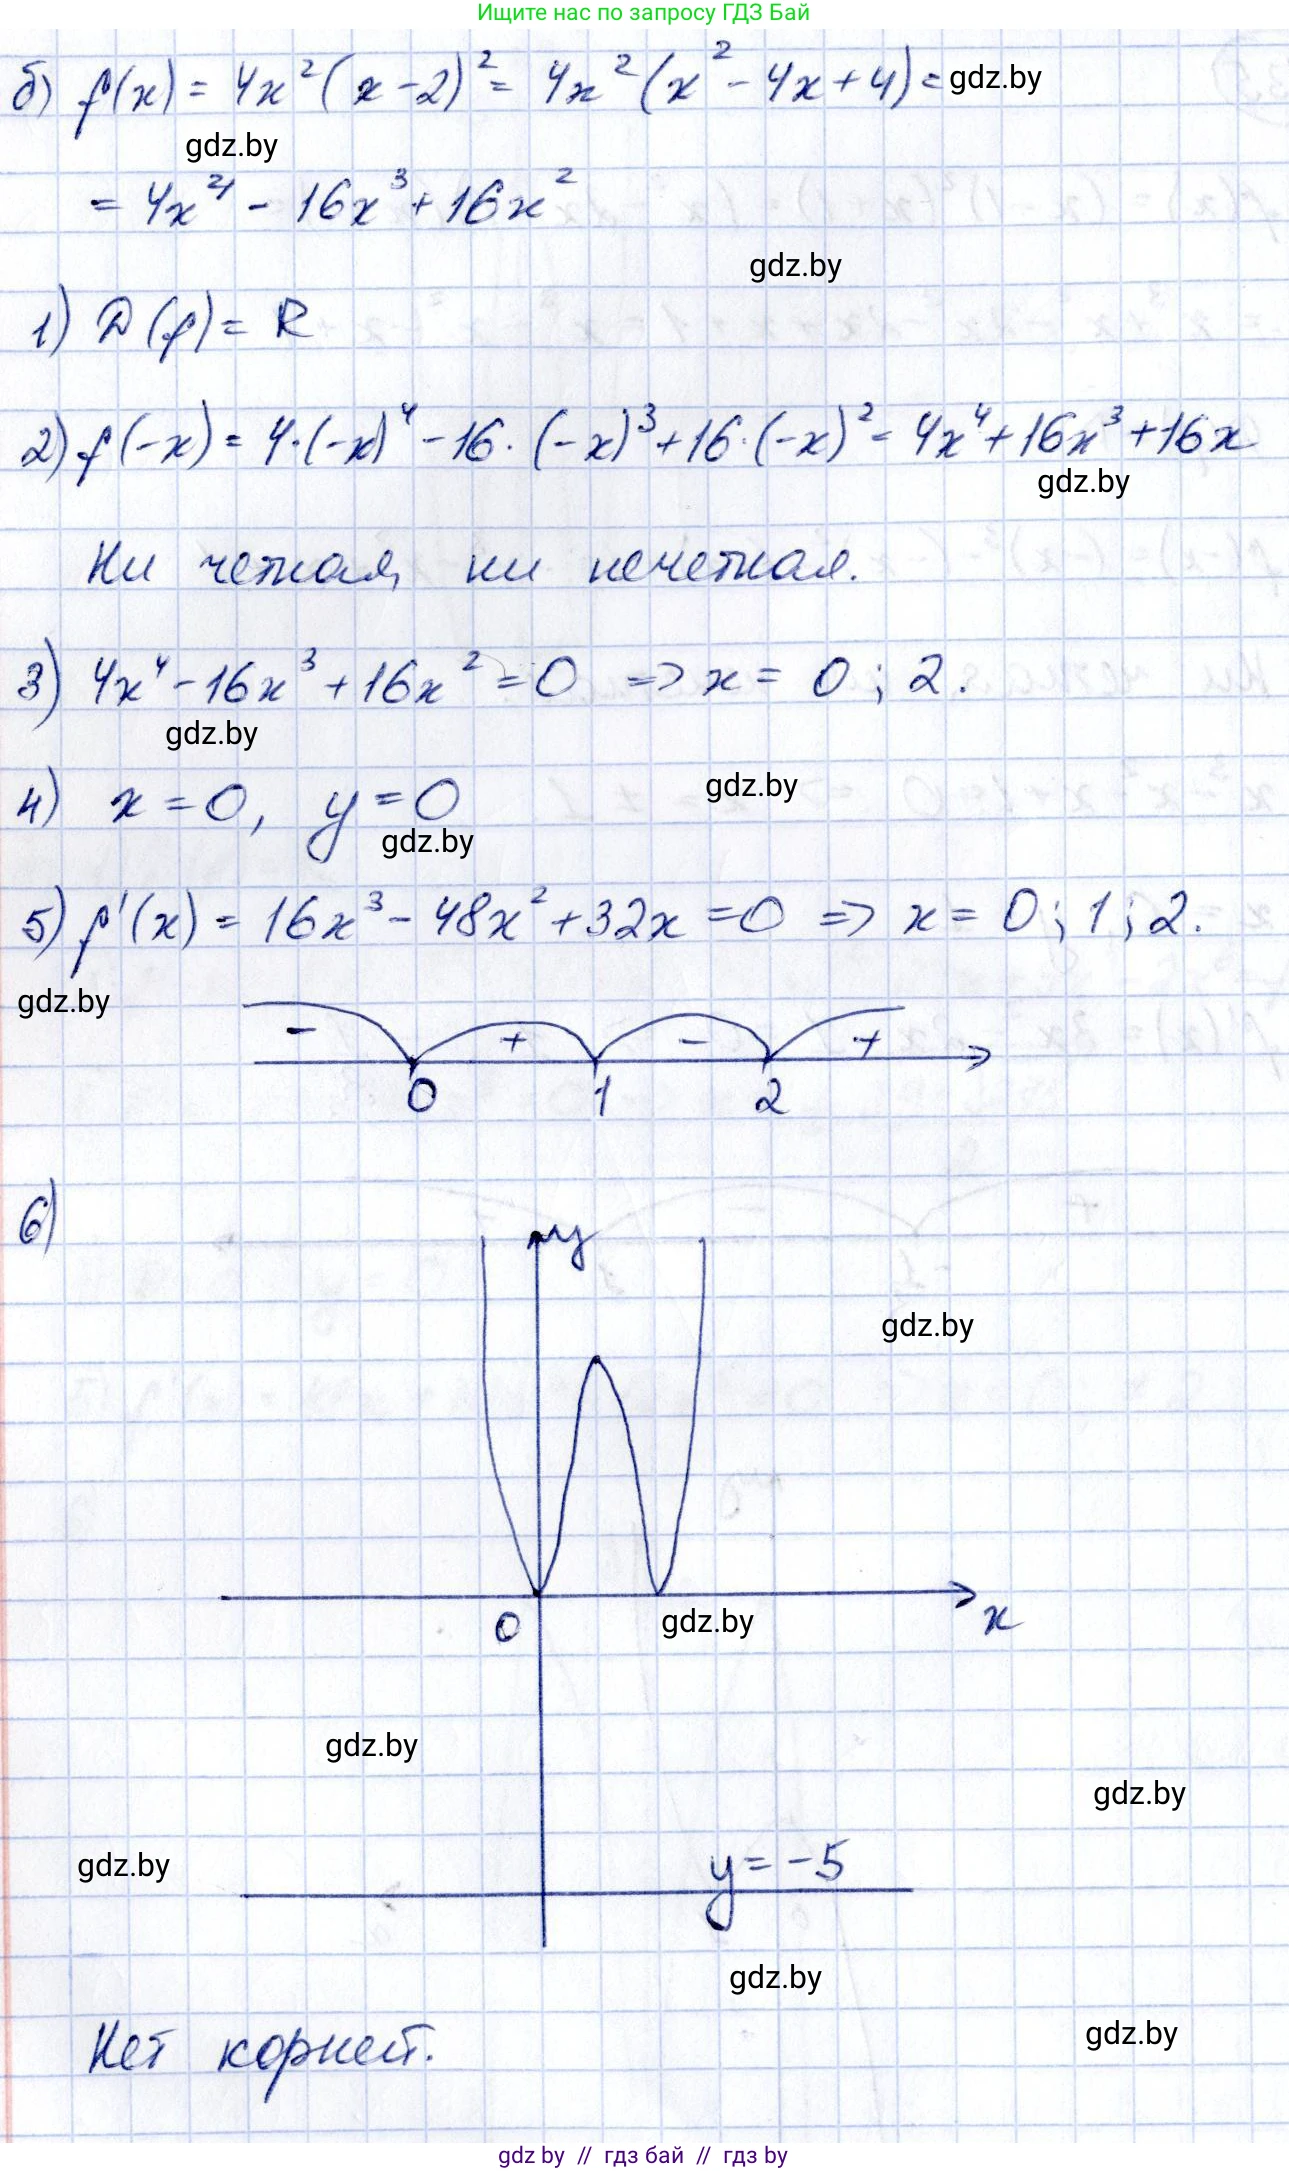 Ищите нас по запросу ГДЗ Бай
б) f(x) = 4x²(x-2)² = 4x²(x² - 4x + 4) = gdz.by
gdz.by
= 4x⁴ - 16x³ + 16x²
gdz.by
1) D(f) = R
2) f(-x) = 4·(-x)⁴ - 16·(-x)³ + 16·(-x)² = 4x⁴ + 16x³ + 16x
gdz.by
Ни четная, ни нечетная.
3) 4x⁴ - 16x³ + 16x² = 0 => x = 0; 2.
gdz.by
gdz.by
4) x = 0, y = 0
gdz.by
5) f'(x) = 16x³ - 48x² + 32x = 0 => x = 0; 1; 2.
gdz.by
- + - +
0 1 2
6)
y
gdz.by
0 gdz.by x
gdz.by
gdz.by
gdz.by y = -5
gdz.by
gdz.by
Нет корней.
gdz by // гдз бай // гдз by